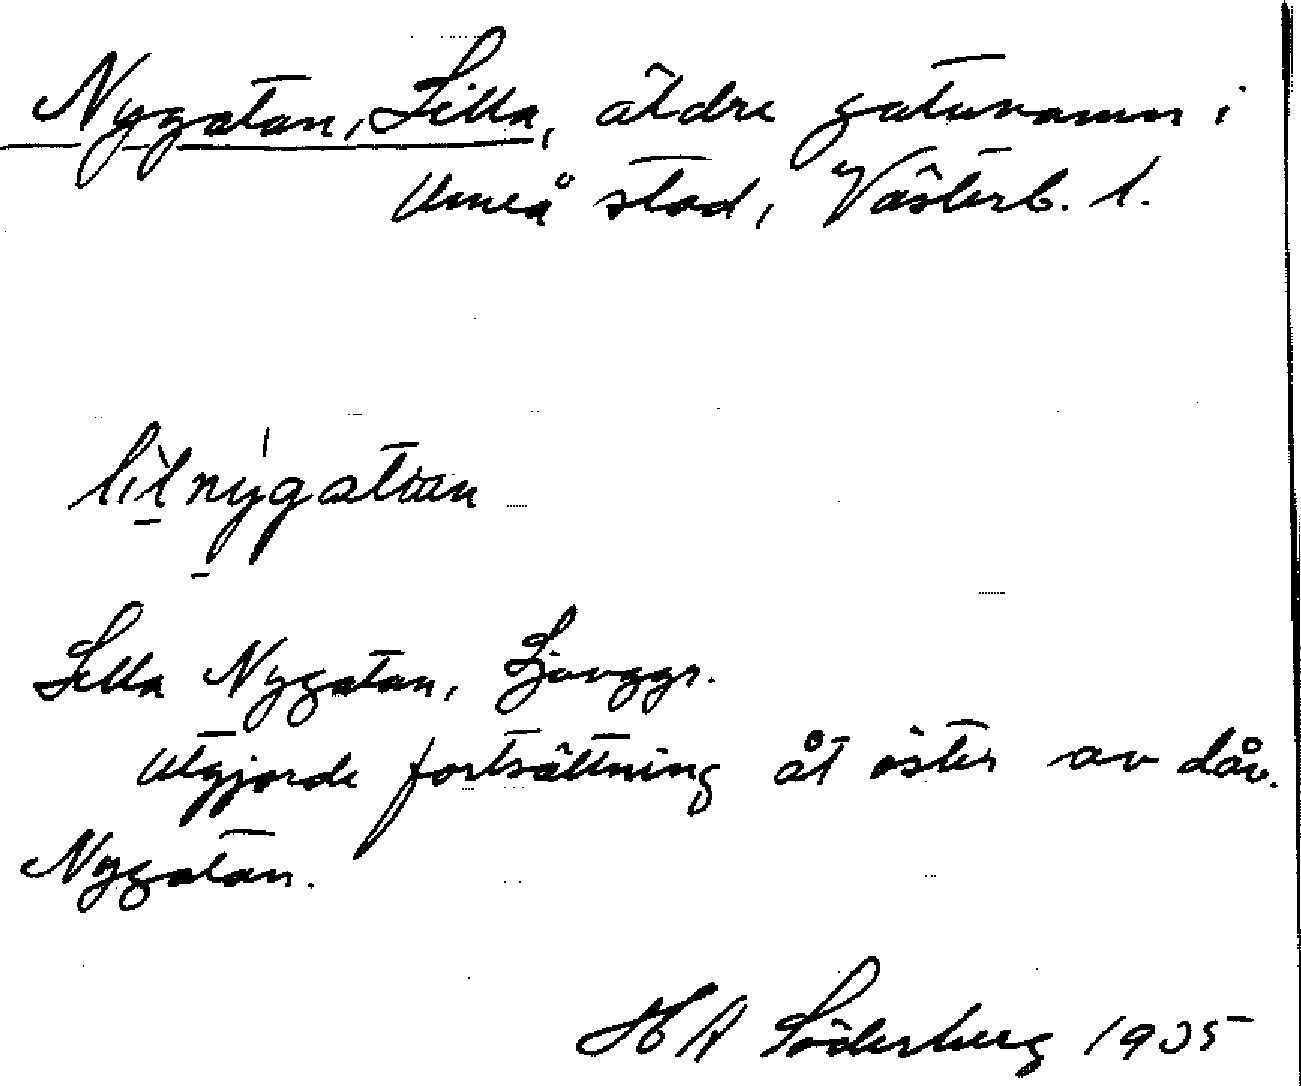 Nygatan, Lilla, äldre gatunamn i
Umeå stad, Västerb. l.
lilnygatan
Lilla Nygatan, Ljunggr.
Utgjorde fortsättning åt öster av dåv.
Nygatan.
H A Söderberg 1935